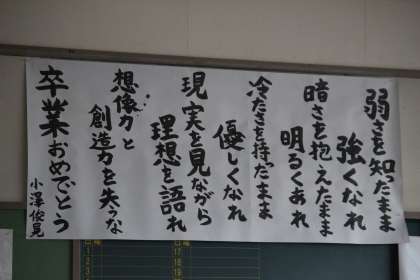 弱さを知ったまま
強くなれ
暗さを抱えたまま
明るくあれ
冷たさを持ったまま
優しくなれ
現実を見ながら
理想を語れ
想像力と
創造力を失うな
卒業おめでとう
小澤俊晃